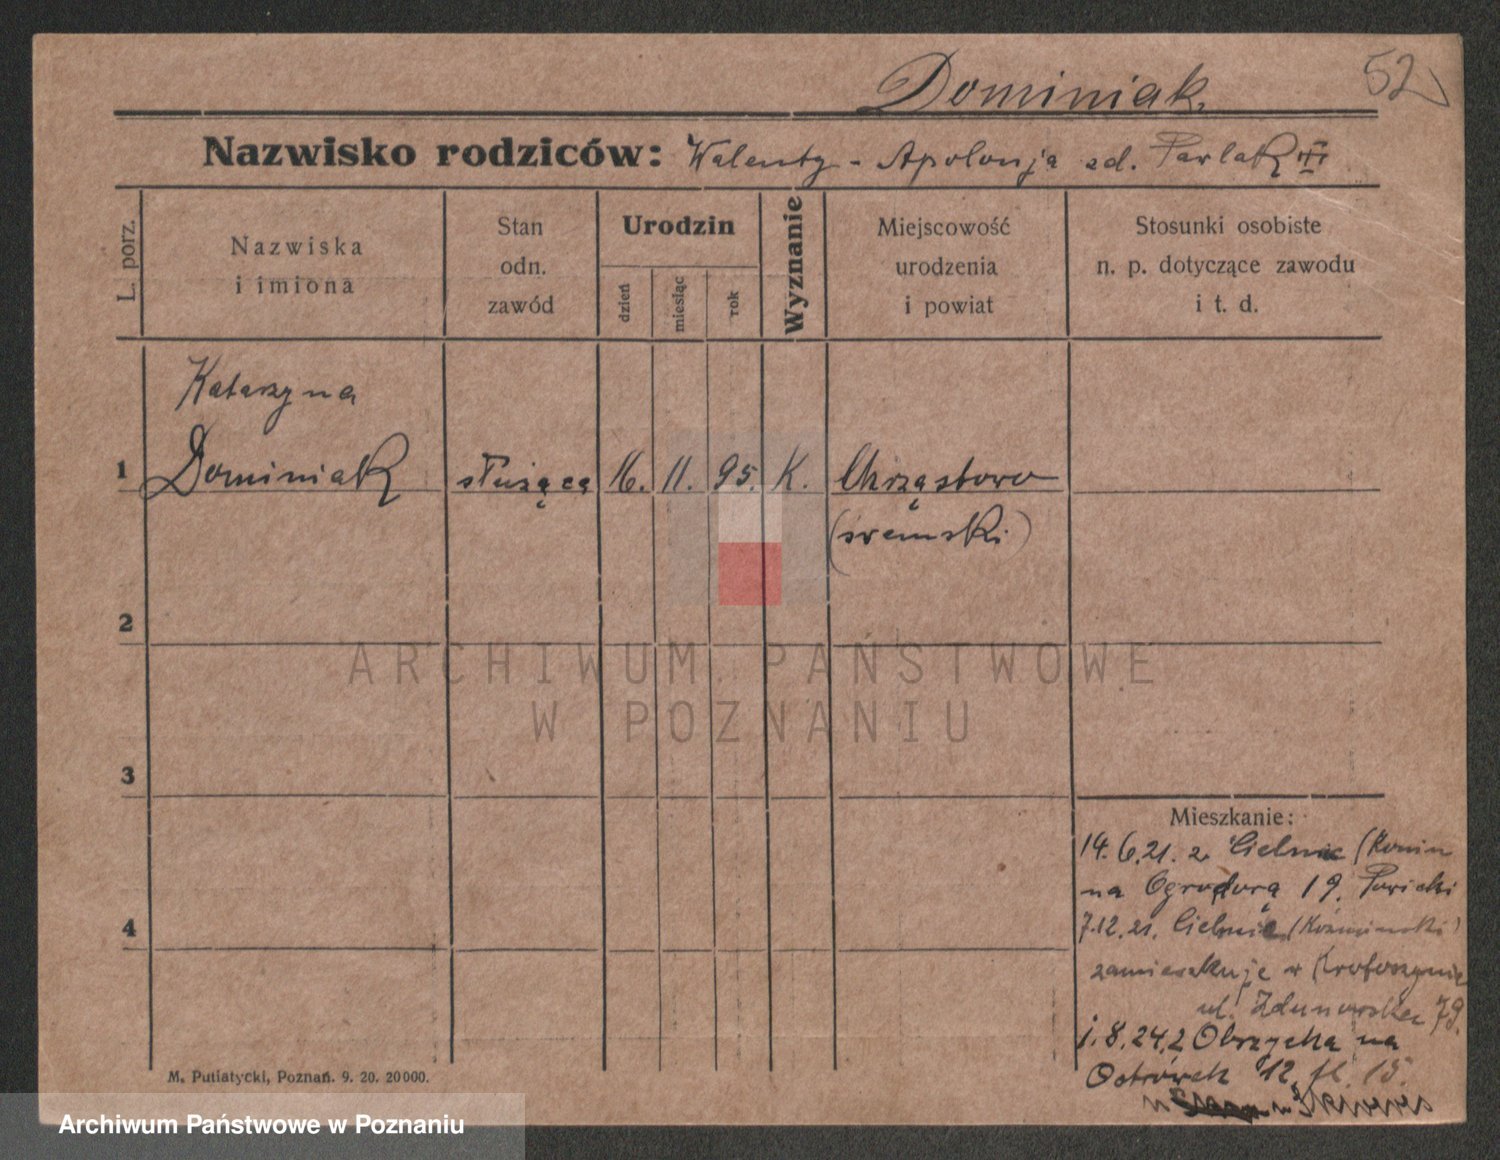 Dominiak.
52
Nazwisko rodziców: Walenty - Apolonja zd. Pawlak
L. porz.
Nazwiska
i imiona
Stan
odn.
zawód
Urodzin
dzień
miesiąc
rok
Wyznanie
Miejscowość
urodzenia
i powiat
Stosunki osobiste
n. p. dotyczące zawodu
i t. d.
Katarzyna
1 Dominiak służąca 16. 11. 95. K. Chrząstowo
(śremski)
2
3
4
Mieszkanie:
14.6.21. z Cielmic
na Ogrodową 19.
7.12.21. Cielmic
zamieszkuje w Krotoszynie
ul. Zdunowska 79.
1.8.24. z Obrzycka na
Ostrówek 12
M. Putiatycki, Poznań. 9. 20. 20000.
ARCHIWUM PAŃSTWOWE
W POZNANIU
Archiwum Państwowe w Poznaniu